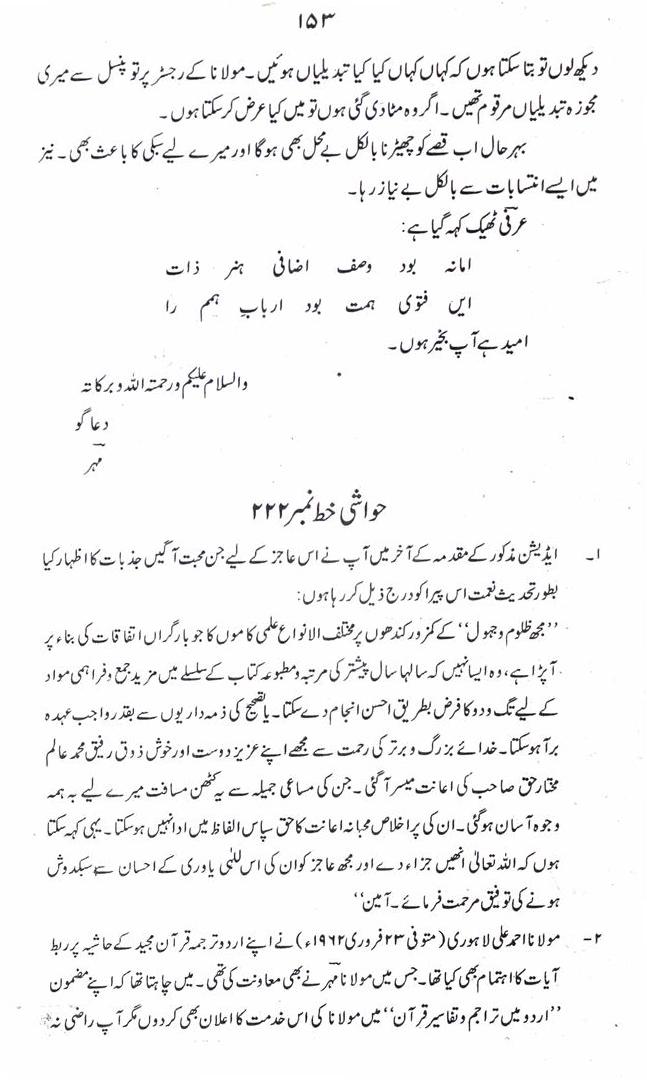 ۱۵۳
دیکھ لوں تو بتا سکتا ہوں کہ کہاں کہاں کیا کیا تبدیلیاں ہوئیں۔ مولانا کے رجسٹر پر تو پنسل سے میری
مجوزہ تبدیلیاں مرقوم تھیں۔ اگر وہ مٹا دی گئی ہوں تو میں کیا عرض کر سکتا ہوں۔
بہر حال اب قصے کو چھیڑنا بالکل بے محل بھی ہوگا اور میرے لیے سبکی کا باعث بھی۔ نیز
میں ایسے انتسابات سے بالکل بے نیاز رہا۔
عرفی ٹھیک کہہ گیا ہے:
امانہ بود وصف اضافی ہنر ذات
ایں فتویٰ ہمت بود اربابِ ہمم را
امید ہے آپ بخیر ہوں۔
والسلام علیکم ورحمتہ اللہ وبرکاتہ
دعا گو
مہر
حواشی خط نمبر ۲۲۲
۱۔ ایڈیشن مذکور کے مقدمہ کے آخر میں آپ نے اس عاجز کے لیے جن محبت آگیں جذبات کا اظہار کیا
بطور تحدیث نعمت اس پیرا کو درج ذیل کر رہا ہوں:
’’مجھ ظلوم و جہول‘‘ کے کمزور کندھوں پر مختلف الانواع علمی کاموں کا جو بار گراں اتفاقات کی بناء پر
آ پڑا ہے، وہ ایسا نہیں کہ سالہا سال پیشتر کی مرتبہ و مطبوعہ کتاب کے سلسلے میں مزید جمع و فراہمی مواد
کے لیے تگ و دو کا فرض بطریق احسن انجام دے سکتا۔ یا تصحیح کی ذمہ داریوں سے بقدر واجب عہدہ
برآ ہو سکتا۔ خدائے بزرگ و برتر کی رحمت سے مجھے اپنے عزیز دوست اور خوش ذوق رفیق محمد عالم
مختار حق صاحب کی اعانت میسر آ گئی۔ جن کی مساعی جمیلہ سے یہ کٹھن مسافت میرے لیے بہ ہمہ
وجوہ آسان ہو گئی۔ ان کی پر اخلاص محبانہ اعانت کا حق سپاس الفاظ میں ادا نہیں ہو سکتا۔ یہی کہہ سکتا
ہوں کہ اللہ تعالیٰ انھیں جزاء دے اور مجھ عاجز کو ان کی اس للّٰہی یاوری کے احسان سے سبکدوش
ہونے کی توفیق مرحمت فرمائے۔ آمین‘‘
۲۔ مولانا احمد علی لاہوری (متوفی ۲۳ فروری ۱۹۶۲ء) نے اپنے اردو ترجمہ قرآن مجید کے حاشیہ پر ربط
آیات کا اہتمام بھی کیا تھا۔ جس میں مولانا مہر نے بھی معاونت کی تھی۔ میں چاہتا تھا کہ اپنے مضمون
’’اردو میں تراجم و تفاسیر قرآن‘‘ میں مولانا کی اس خدمت کا اعلان بھی کر دوں مگر آپ راضی نہ